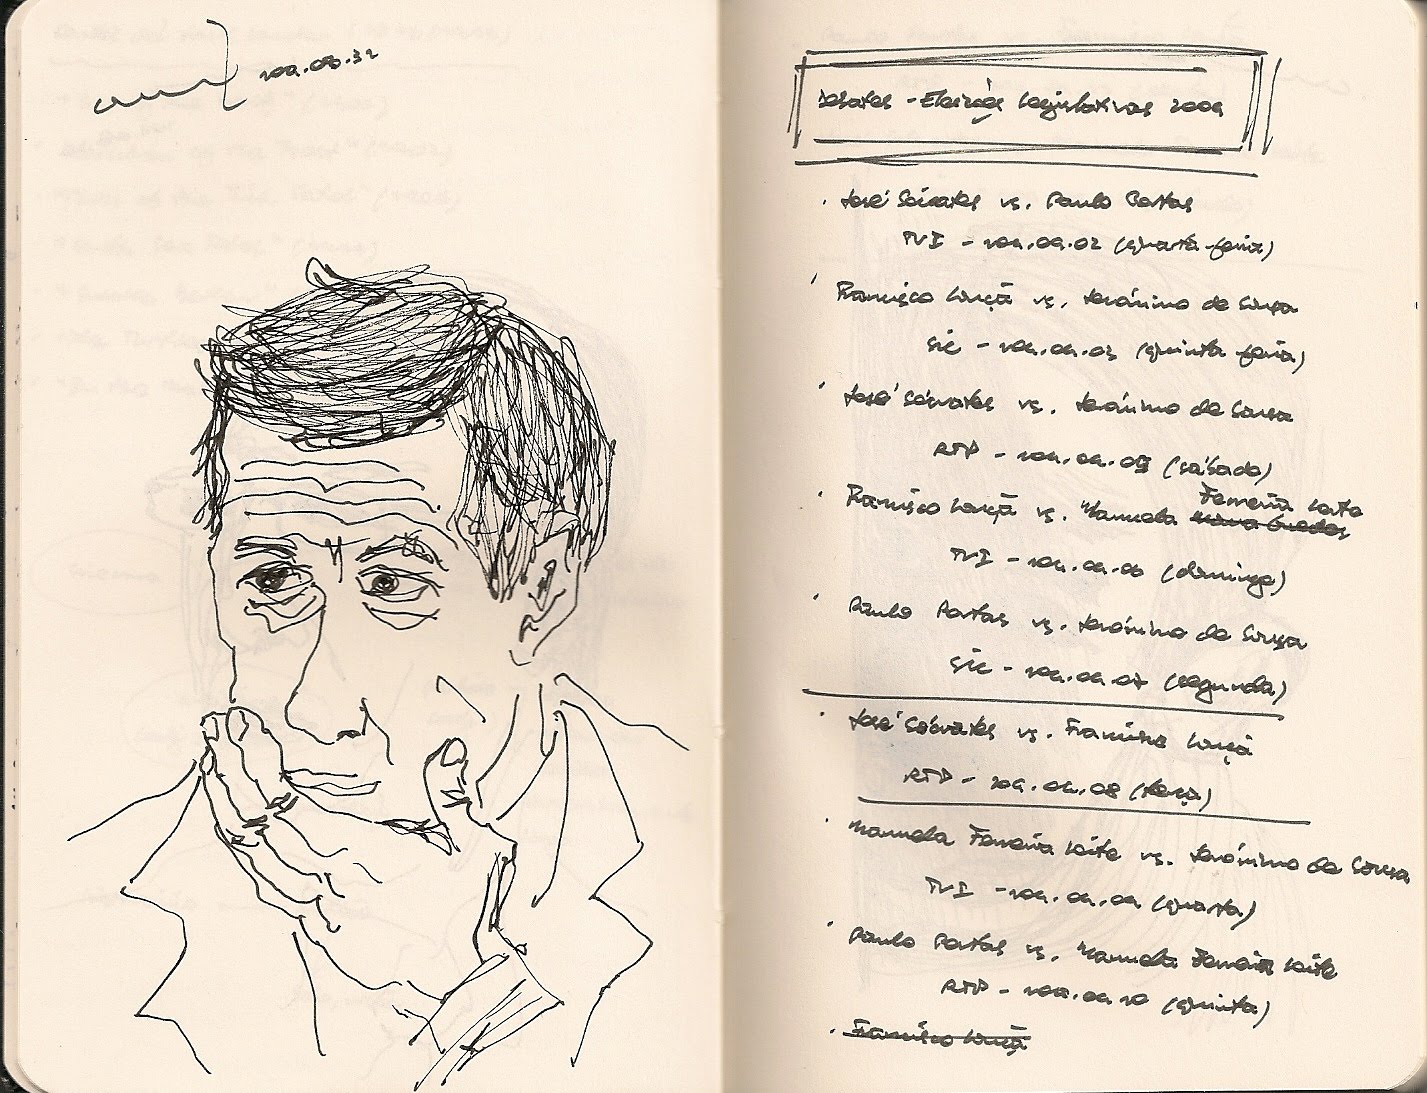 009.08.31
Debates - Eleições Legislativas 2009
· José Sócrates vs. Paulo Portas
TVI - 009.09.02 (quarta-feira)
· Francisco Louçã vs. Jerónimo de Sousa
SIC - 009.09.03 (quinta feira)
· José Sócrates vs. Jerónimo de Sousa
RTP - 009.09.05 (sábado)
· Francisco Louçã vs. Manuela Ferreira Leite
TVI - 009.09.06 (domingo)
· Paulo Portas vs. Jerónimo de Sousa
SIC - 009.09.07 (segunda)
· José Sócrates vs. Francisco Louçã
RTP - 009.09.08 (terça)
· Manuela Ferreira Leite vs. Jerónimo de Sousa
TVI - 009.09.09 (quarta)
· Paulo Portas vs. Manuela Ferreira Leite
RTP - 009.09.10 (quinta)
· Francisco Louçã